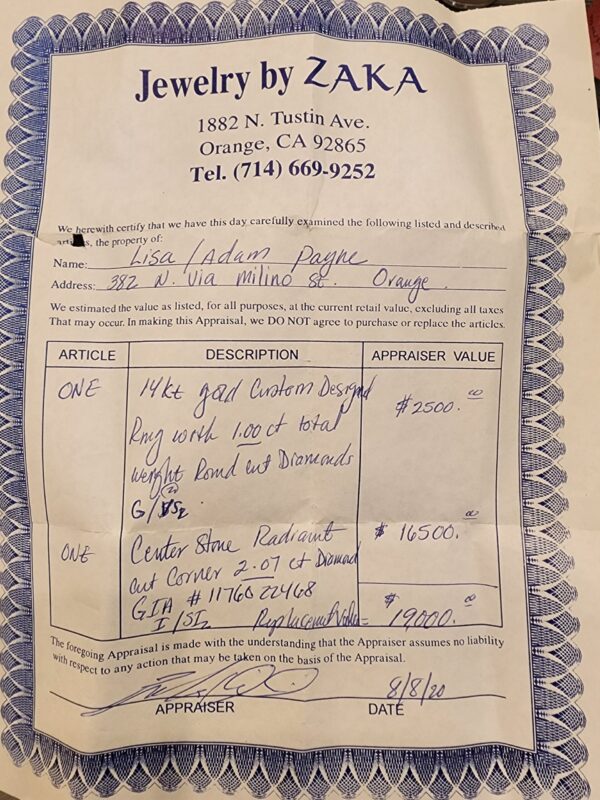 Jewelry by ZAKA
1882 N. Tustin Ave.
Orange, CA 92865
Tel. (714) 669-9252
We herewith certify that we have this day carefully examined the following listed and described
articles, the property of:
Name: Lisa / Adam Payne
Address: 382 N. Via Milino St. Orange.
We estimated the value as listed, for all purposes, at the current retail value, excluding all taxes
That may occur. In making this Appraisal, we DO NOT agree to purchase or replace the articles.
ARTICLE DESCRIPTION APPRAISER VALUE
ONE 14kt gold Custom Designed $2500.00
Ring with 1.00 ct total
weight Round cut Diamonds
G/VS2
ONE Center Stone Radiant $16500.00
cut Corner 2.07 ct Diamond
GIA # 1176022468
I/SI2 Replacement Value = $19000.00
The foregoing Appraisal is made with the understanding that the Appraiser assumes no liability
with respect to any action that may be taken on the basis of the Appraisal.
8/8/20
APPRAISER DATE